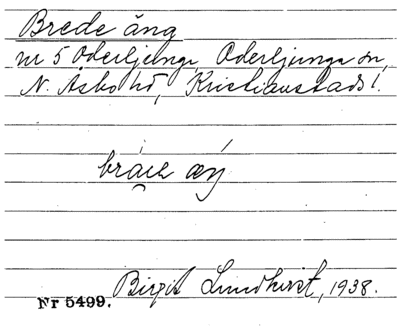 Brede äng
nr 5 Oderljunga, Oderljunga sn,
N. Åsbo hd, Kristianstads l.
Birgit Lundkvist, 1938.
Nr 5499.